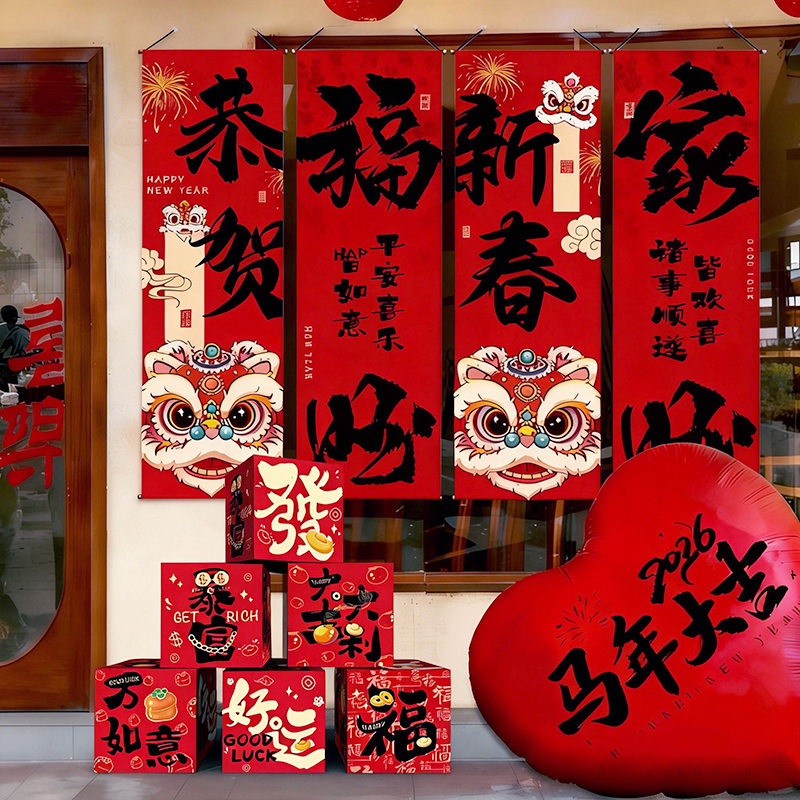 恭贺
HAPPY
NEW YEAR
福
平安喜乐
如意
HAPPY
新春
家
皆欢喜
诸事顺遂
GOOD LUCK
發
暴富
GET RICH
大吉大利
GOOD LUCK
万
如意
好运
GOOD
LUCK
福
2026
马年大吉
HAPPY NEW YEAR